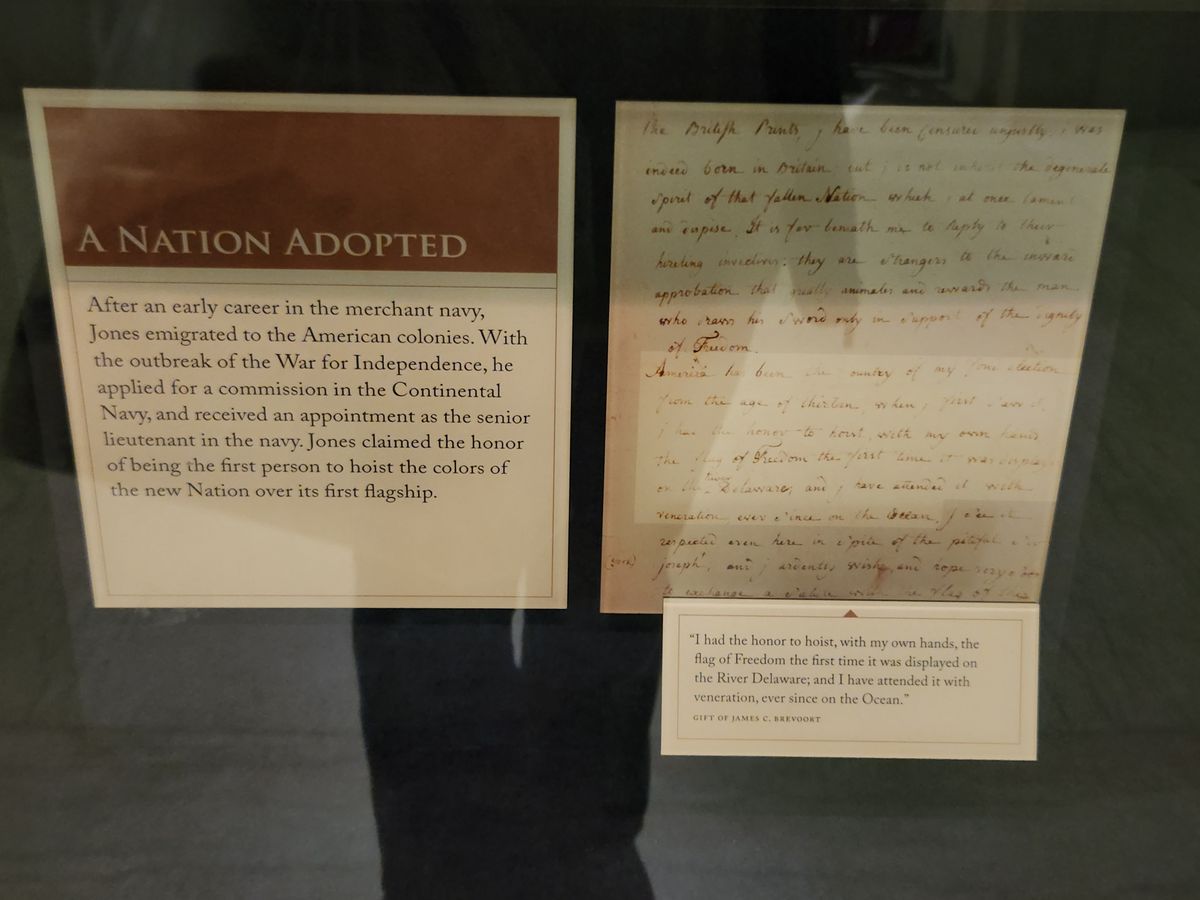 A NATION ADOPTED
After an early career in the merchant navy,
Jones emigrated to the American colonies. With
the outbreak of the War for Independence, he
applied for a commission in the Continental
Navy, and received an appointment as the senior
lieutenant in the navy. Jones claimed the honor
of being the first person to hoist the colors of
the new Nation over its first flagship.
The British Prints, j have been Censured unjustly. j was
indeed born in Britain but j do not inherit the degenerate
Spirit of that fallen Nation which j at once lament
and dispise. It is far beneath me to Reply to their
hireling invectives: they are Strangers to the inward
approbation that really animates and rewards the man
who draws his Sword only in Support of the dignity
of Freedom.
America has been the Country of my fond election
from the age of thirteen, when j first saw it.
j had the honor to hoist, with my own hands
the flag of Freedom the first time it was
river
on the Delaware; and j have attended it with
veneration ever Since on the Ocean. j See it
respected even here in Spite of the pitiful
joseph, and j ardently wish and hope very
to exchange a Salute with the Flag of this
"I had the honor to hoist, with my own hands, the
flag of Freedom the first time it was displayed on
the River Delaware; and I have attended it with
veneration, ever since on the Ocean."
GIFT OF JAMES C. BREVOORT